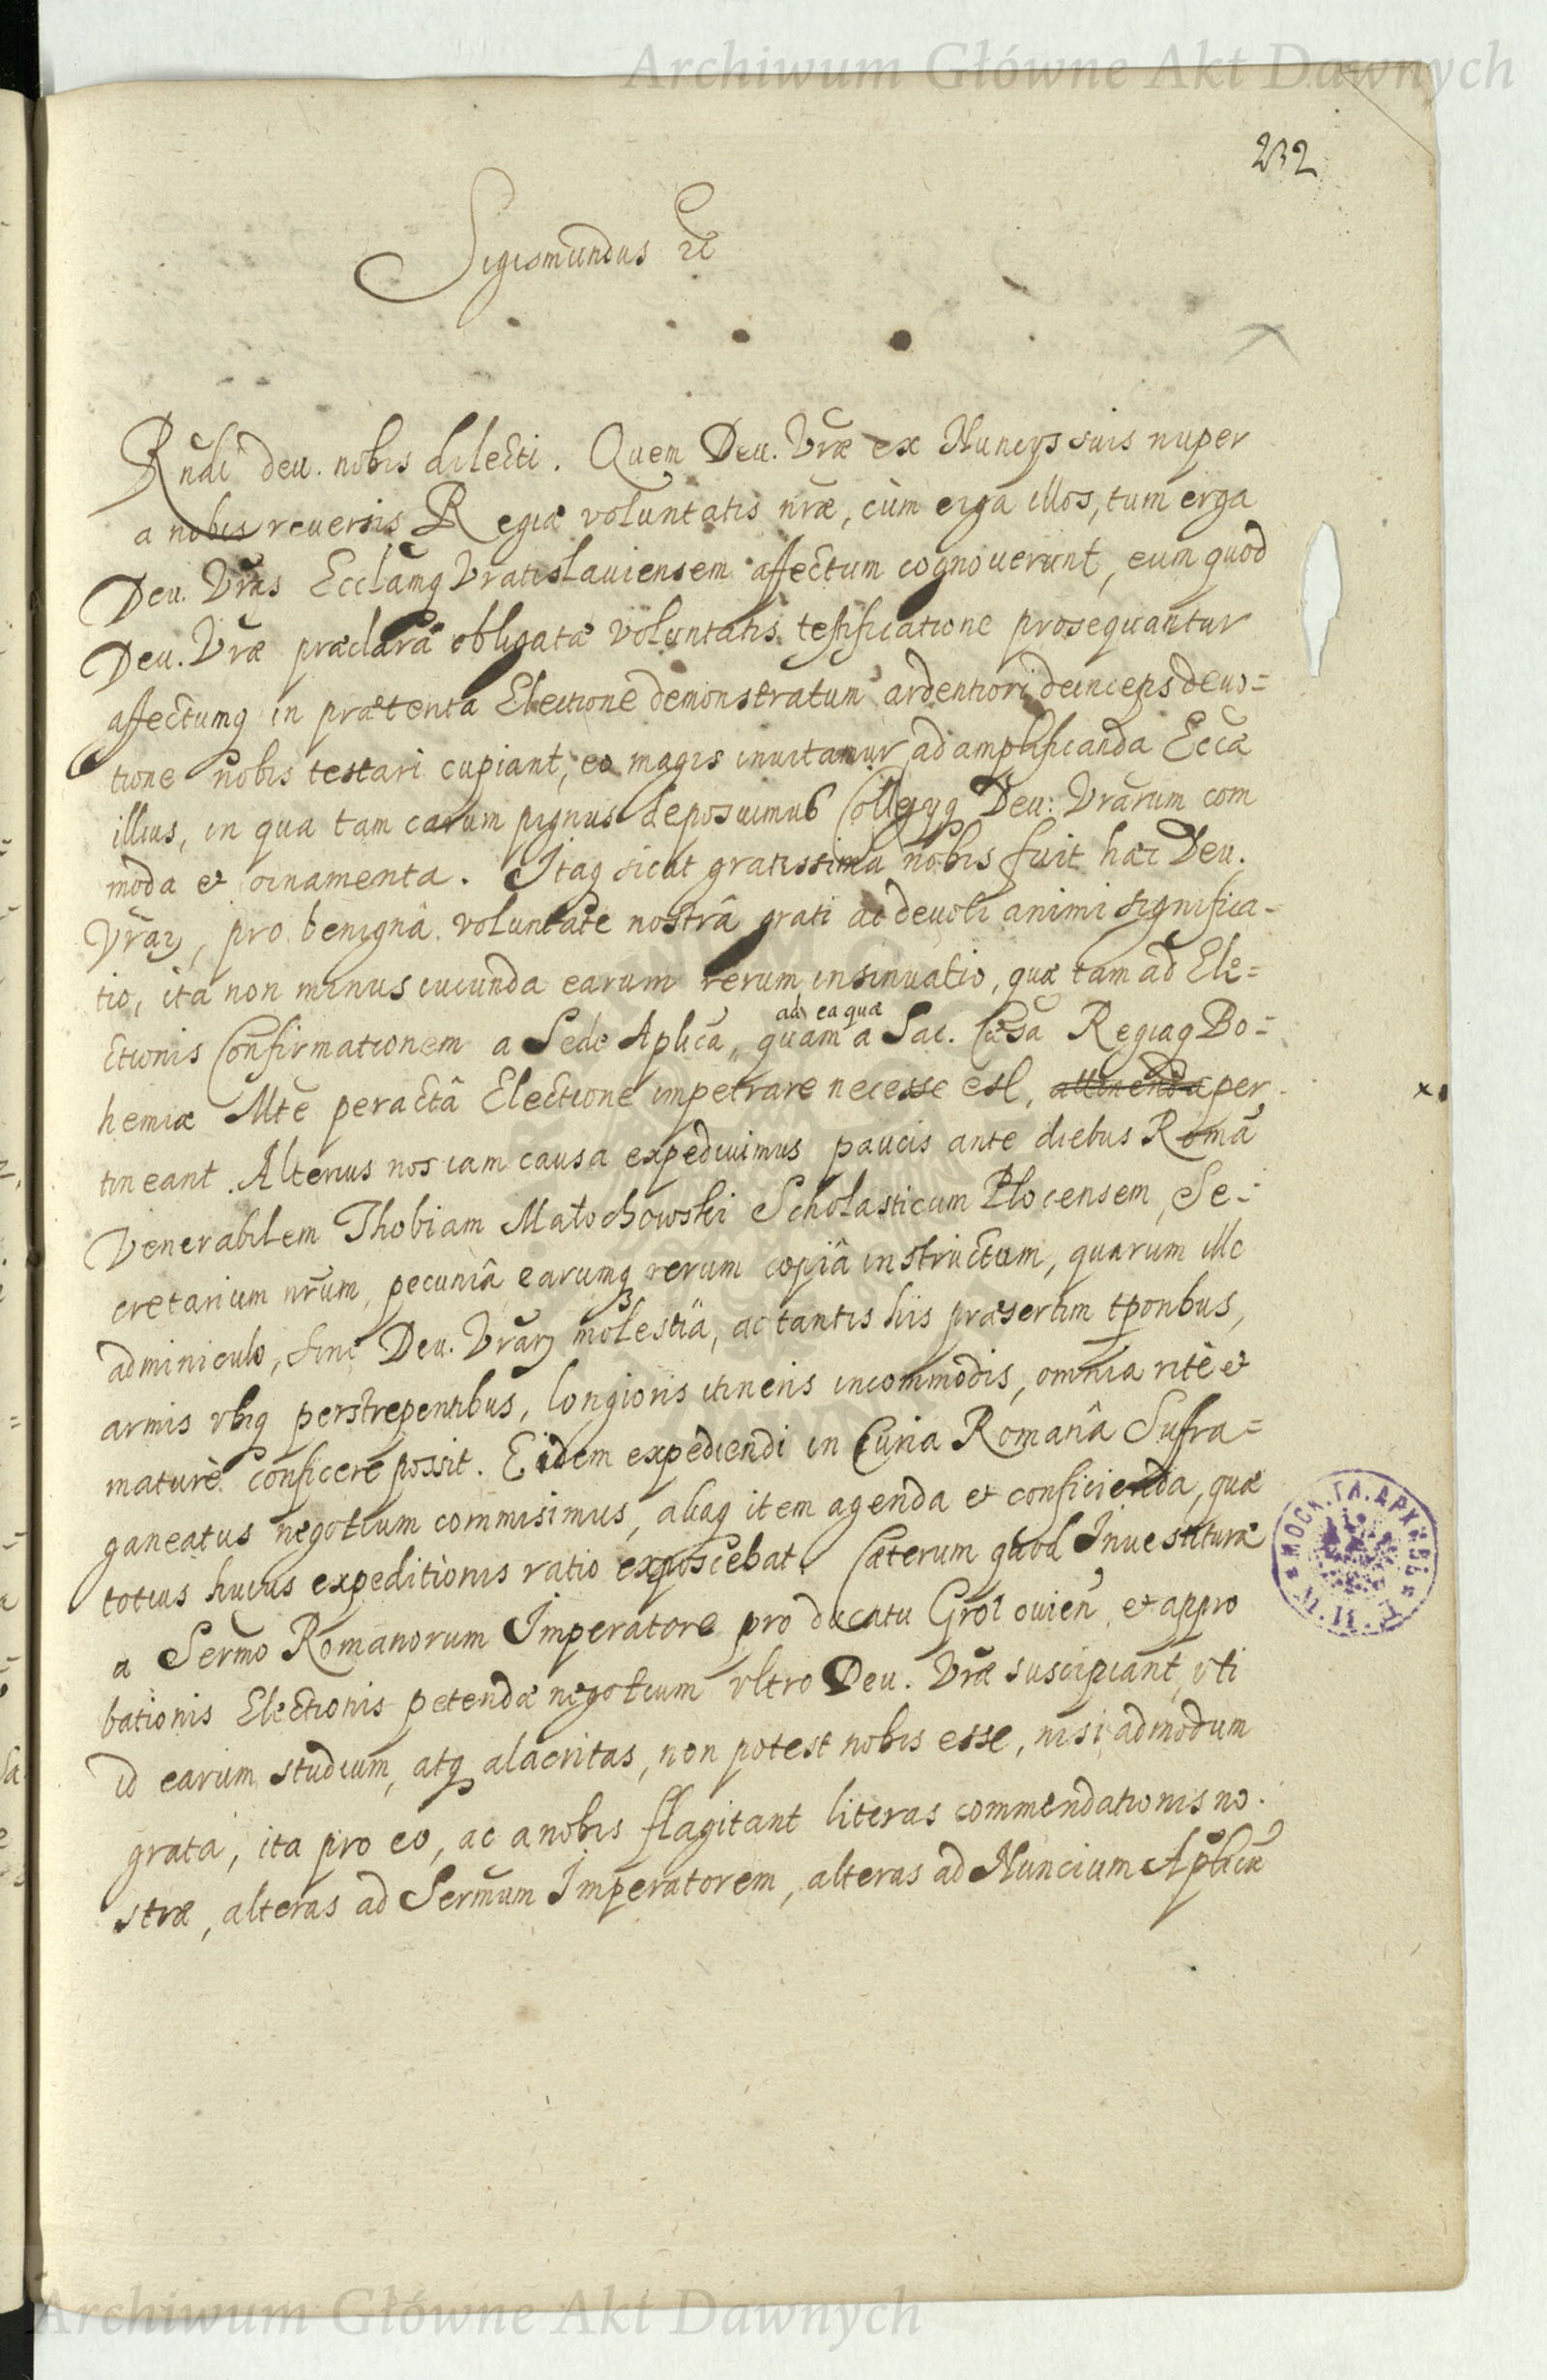 Archiwum Główne Akt Dawnych
232
Sigismundus
Rndi deu. nobis dilecti. Quem Deu. Vrae ex Nuncijs suis nuper
a nobis reversis Regiae voluntatis nrae, cùm erga illos, tum erga
Deu. Vras Ecclamq Vratislauiensem affectum cognoverunt, eum quod
Deu. Vrae praeclarâ obligatae voluntatis testificatione prosequantur
affectumq in praetenta Electione demonstratum ardentiori deinceps deuo=
tione nobis testari cupiant, eo magis inuitamur ad amplificanda Eccae
illius, in qua tam carum pignus deposuimus Collegijq Deu: Vrarum com
moda et ornamenta. Itaq sicut gratissima nobis fuit haec Deu.
Vrar, pro benignâ voluntate nostrâ grati ac deuoti animi significa-
tio, ita non minus iucunda earum rerum insinuatio, quae tam ad Ele=
ctionis Confirmationem a Sede Aplica, quam ad ea quae a Sac. Caesa Regiaq Bo=
hemiae Mte peractâ Electione impetrare necesse est, attinenda per
tineant. Alterius nos iam causa expediuimus paucis ante diebus Româ
Venerabilem Thobiam Małochowski Scholasticum Plocensem, Se-
cretarium nrum, pecuniâ earumq rerum copiâ instructum, quarum ille
adminiculo, sine Deu. Vrar molestiâ, ac tantis his praesertim tponbus,
armis vbiq perstrepentibus, longioris itineris incommodis, omnia ritè et
maturè conficere possit. Eidem expediendi in Curia Romanâ Sufra=
ganeatus negotium commisimus, aliaq item agenda et conficienda, quae
totius huius expeditionis ratio exposcebat. Caeterum quod Inuestiturae
a Sermo Romanorum Imperatore pro ducatu Grotouien et appro
bationis Electionis petendae negotium vltro Deu. Vrae suscipiant, vti
id earum studium, atq alacritas, non potest nobis esse, nisi admodum
grata, ita pro eo, ac a nobis flagitant literas commendationis no.
strae, alteras ad Sermum Imperatorem, alteras ad Nuncium Aplicu
МОСК. ГЛ. АРХИВЪ
Archiwum Główne Akt Dawnych